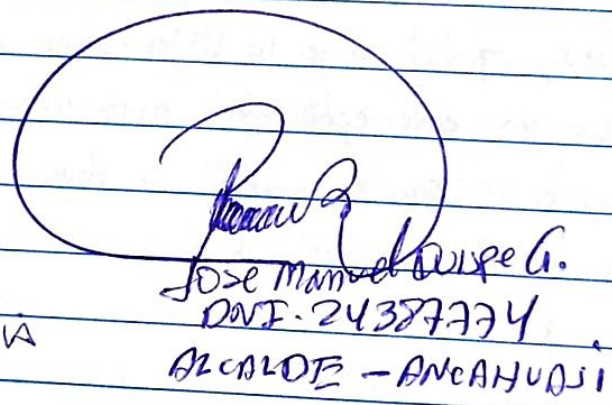 Jose Manuel Quispe G.
DNI. 24387774
ALCALDE - ANCAHUASI